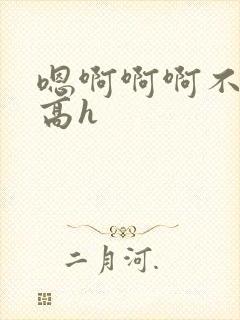 嗯啊啊啊不
高h
二月河.